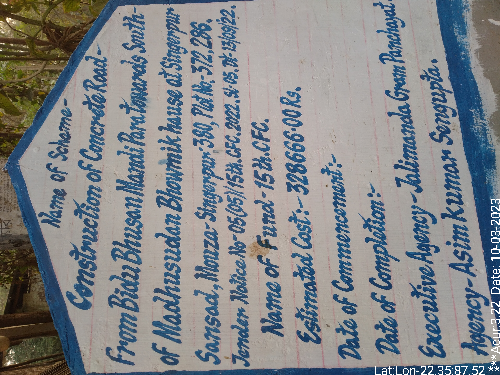 Name of Scheme-
Construction of Concrete Road-
From Bidu Bhusan Mandi Para towards South-
of Madhusudan Bhowmik house at Singarpur
Sansad, Mouza- Singarpur- 390, Plot No- 372,286,
Tender Notice No- 05(05)/15th.CFC.2022. Sl-15. Dt-13/09/22.
Name of Fund- 15 th CFC.
Estimated Cost:- 328666.00 Rs.
Date of Commencement:-
Date of Completion:-
Executive Agency- Jalimanda Gram Panchayat.
Agency- Asim Kumar Sengupta.
Lat Lon-22.35,87.52
Date: 19-03-2023